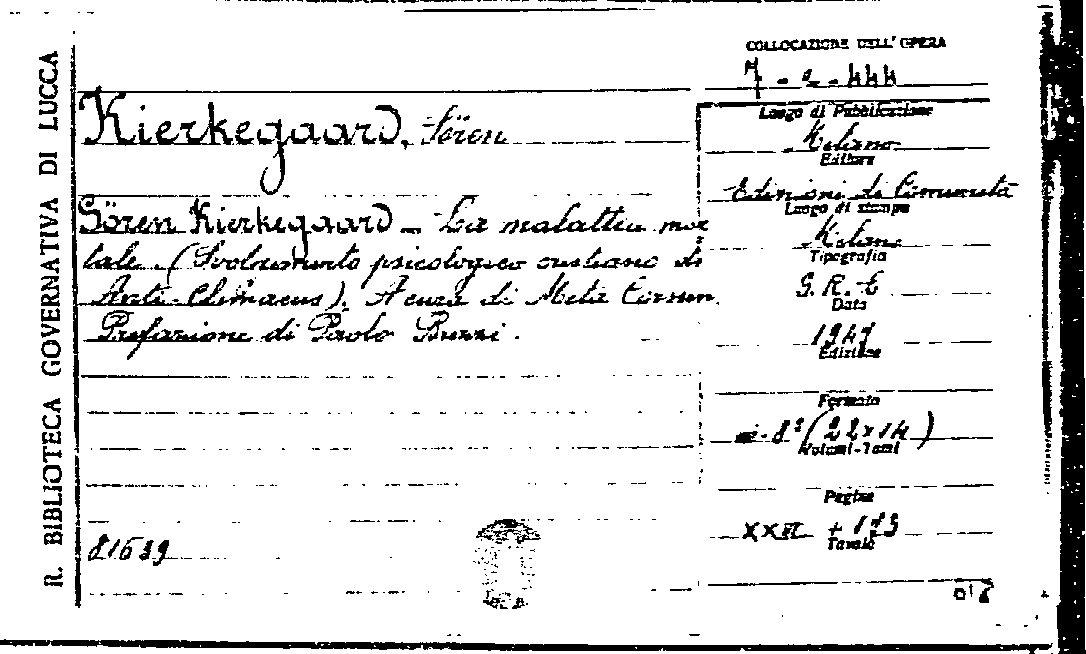 R. BIBLIOTECA GOVERNATIVA DI LUCCA
COLLOCAZIONE DELL'OPERA
Kierkegaard, Sören
Luogo di Pubblicazione
Milano
Editore
Edizioni di Comunità
Luogo di stampa
Milano
Tipografia
G.R.E
Data
1947
Edizione
Formato
in-8° (22x14)
Volumi-Tomi
Pagine
+ 173
Tavole
Sören Kierkegaard - La malattia mor
tale. (Svolgimento psicologico cristiano di
Anti-Climacus). A cura di Meta Corssen.
Prefazione di Paolo Brezzi.
81639